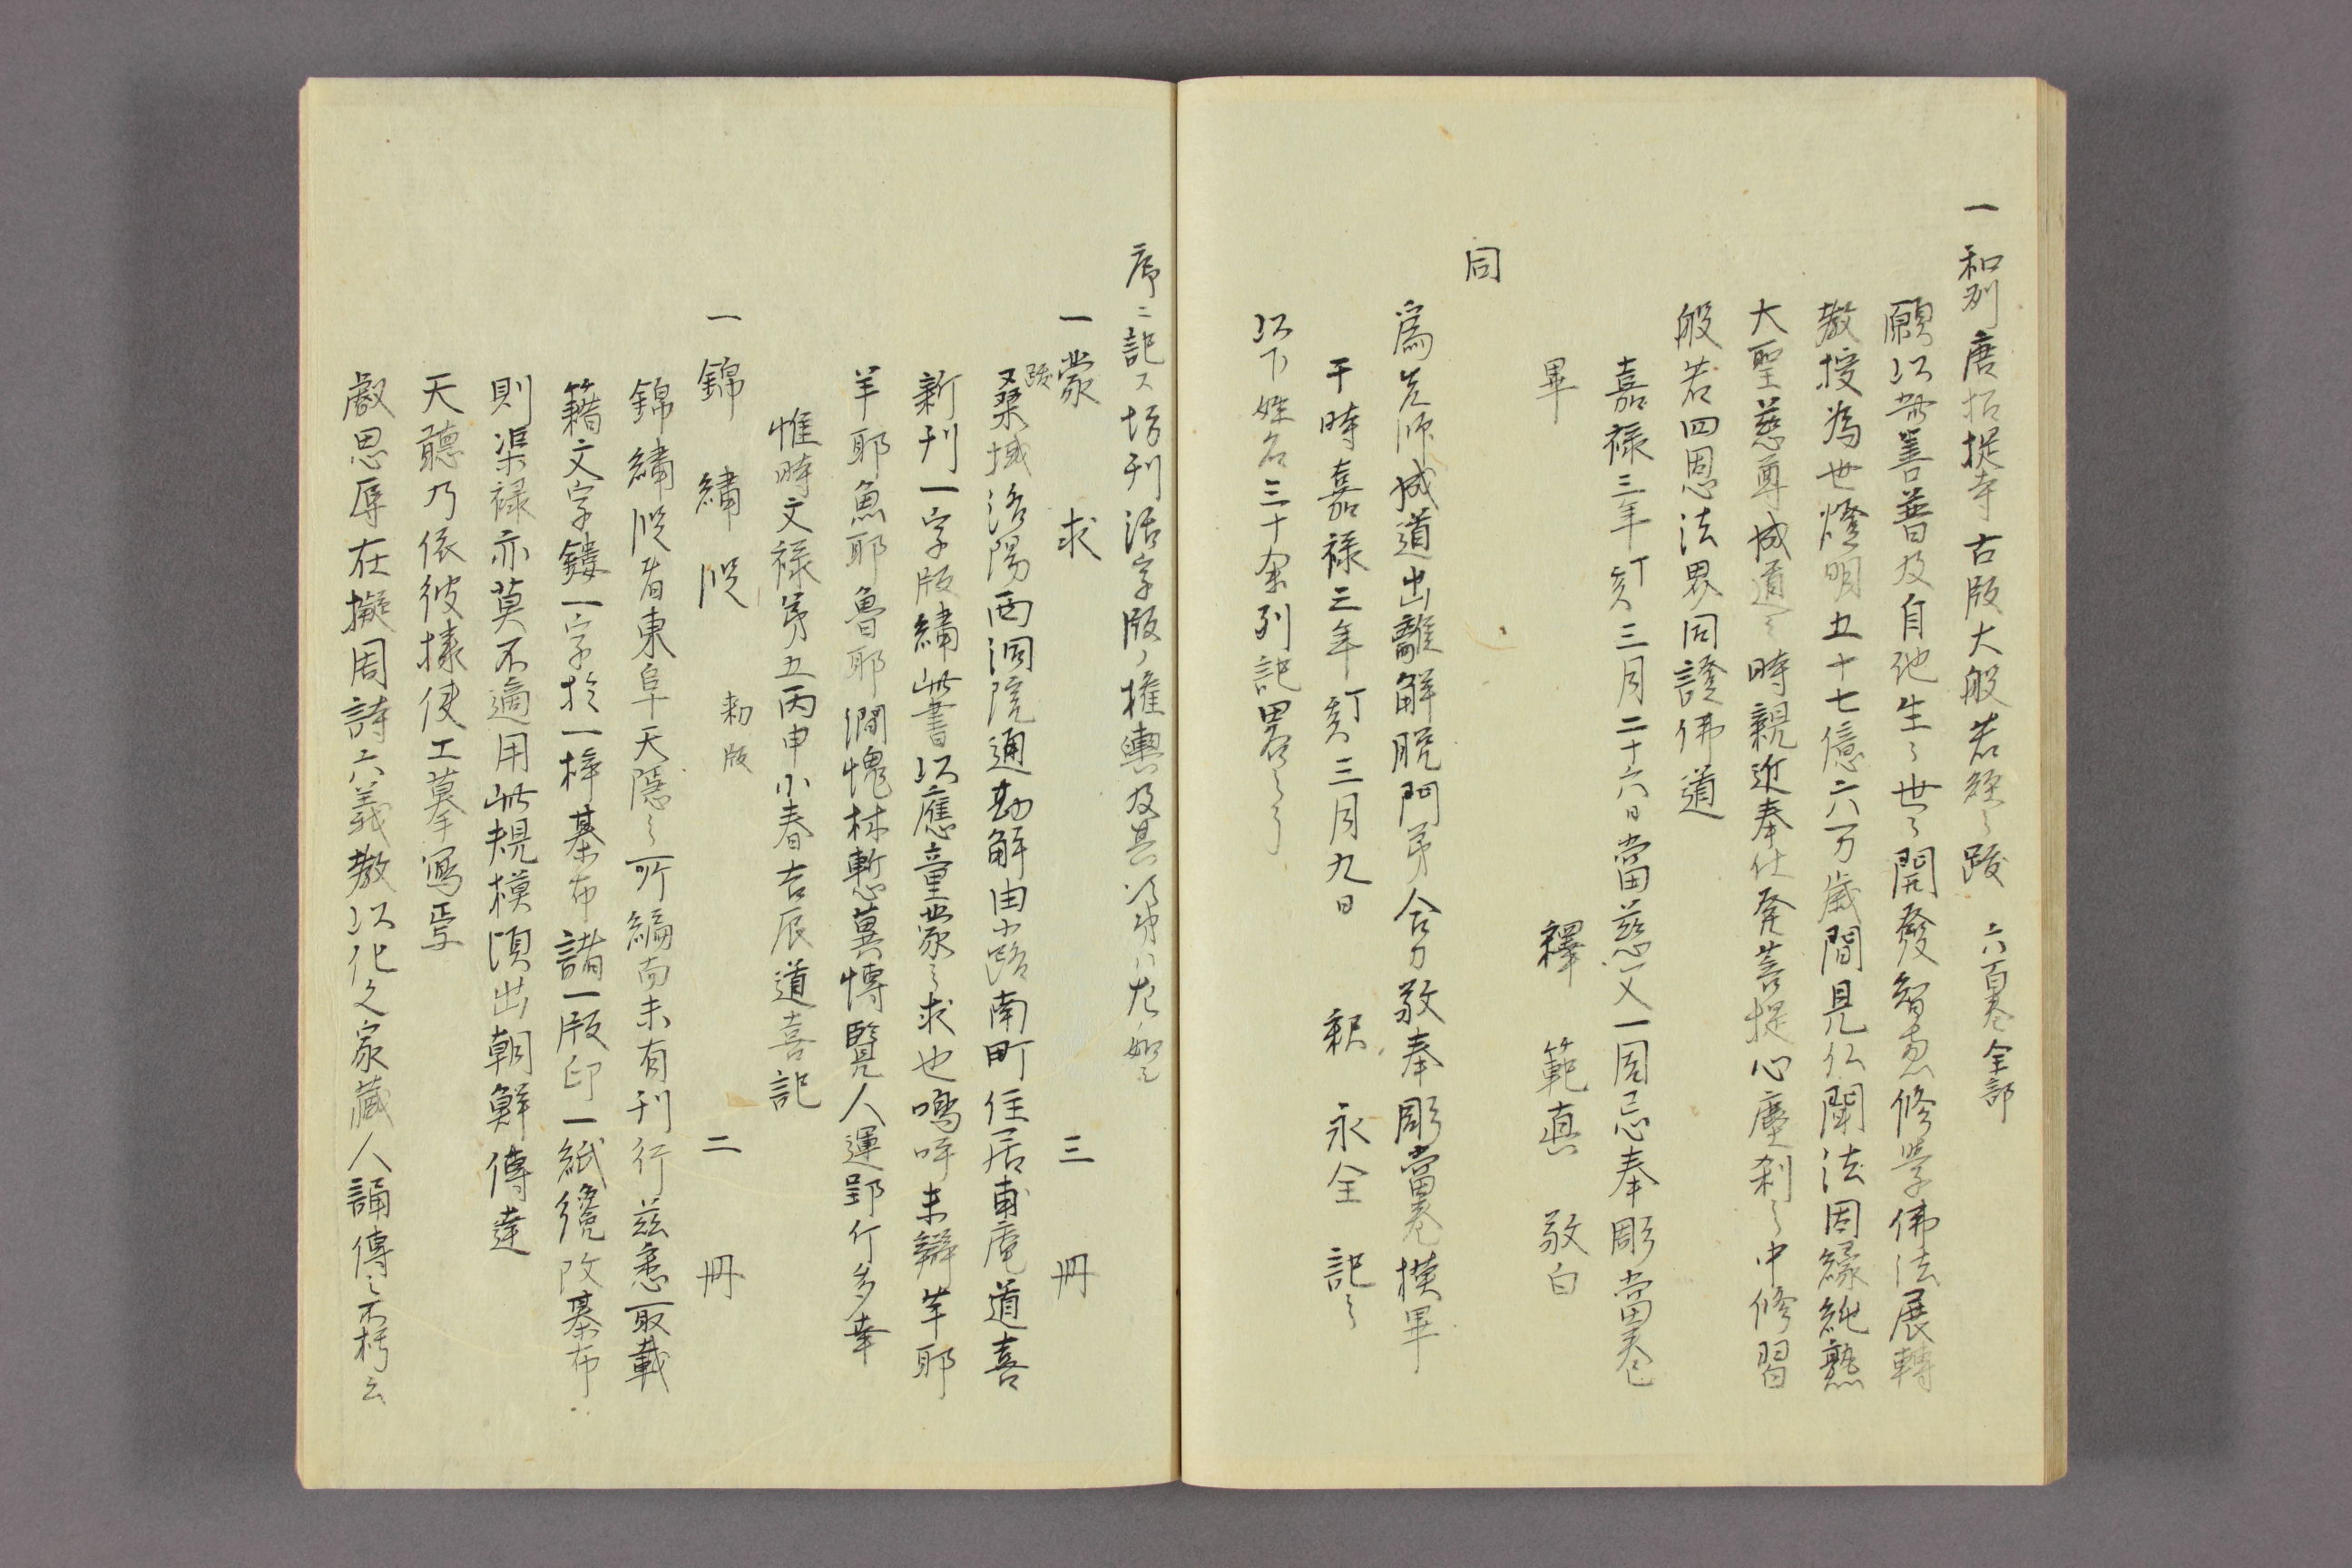 一 和列唐招提寺古版大般若経之跋 六百巻全部
願以此善普及自他生々世々開發智恵修學佛法展轉
教授為世燈明五十七億六万歳間見仏聞法因縁純熟
大聖慈尊成道之時親近奉仕発菩提心塵刹之中修習
般若四恩法界同證佛道
嘉禄三年丁亥三月二十六日當慈父一周忌奉彫當巻
畢 釋 範真 敬白
同
為先師成道出離解脱門弟合力敬奉彫當巻摸畢
干時嘉禄三年丁亥三月九日 釈 永全 記之
以下姓名三十余列記畧之了
序ニ記ス坊刊活字版ノ権輿及其以
一 蒙 求 三 冊
跋
又桑域洛陽西洞院通勘解由小路南町住居甫庵道喜
新刊一字版繍此書以應童蒙之求也嗚呼未辯芊耶
羊耶魚耶魯耶澗愧林慙冀博覧人運郢斤多幸
惟時文禄第五丙申小春吉辰道喜記
一 錦 繍 段 勅版 二 冊
錦繍段者東阜天隠之所編而未有刊行茲悉取載
籍文字鏤一字於一梓棊布諸一版印一紙纔改棊布
則渠禄亦莫不適用此規模頃出朝鮮傳達
天聽乃依彼様使工摹寫焉
叡思辱在擬周詩六義教以化之家蔵人誦傳之不朽云